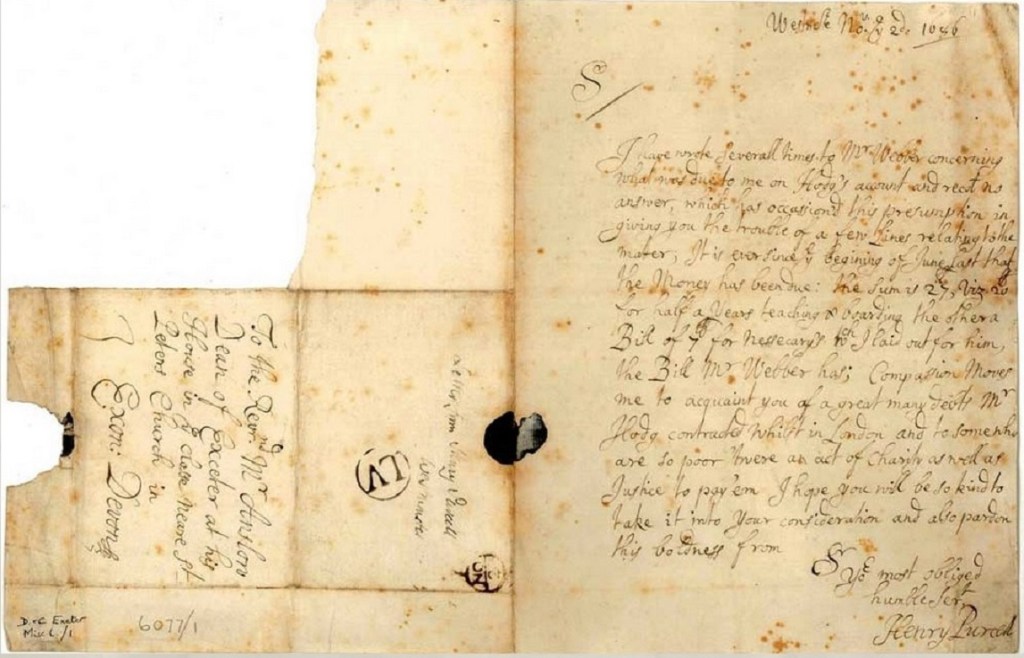 Novr ye 2d. 1686
S
I have wrote severall times to Mr Webber concerning
what was due to me on Hodg's account and recd no
answer, which has occasion'd this presumption in
giving you the trouble of a few Lines relating to the
matter, It is ever since ye begining of June last that
the Money has been due: the sum is £27, viz 20
for half a Years teaching & boarding the other a
Bill of £7 for nessecary's wch I laid out for him,
the Bill Mr Webber has; Compassion Moves
me to acquaint you of a great many debts Mr
Hodg contracted whilst in London and to some who
are so poor 'twere an act of Charity as well as
Justice to pay 'em I hope you will be so kind to
take it into Your consideration and also pardon
this boldness from
Sr
Yor most obliged
humble Sert
Henry Purcell
To the Revernd Mr
Dean of Exceter at his
House in ye close neare St
Peters Church in
Exon: Devonsh
LV
D. & C. Exeter
6077/1